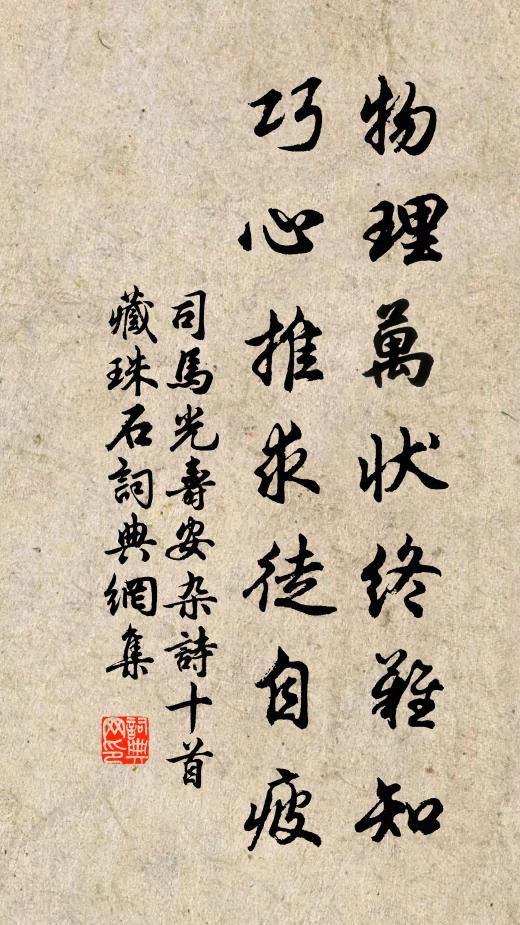 物理萬狀終難知
巧心推求徒自疲
司馬光壽安杂詩十首
藏珠石詞典網集
詞典
网印